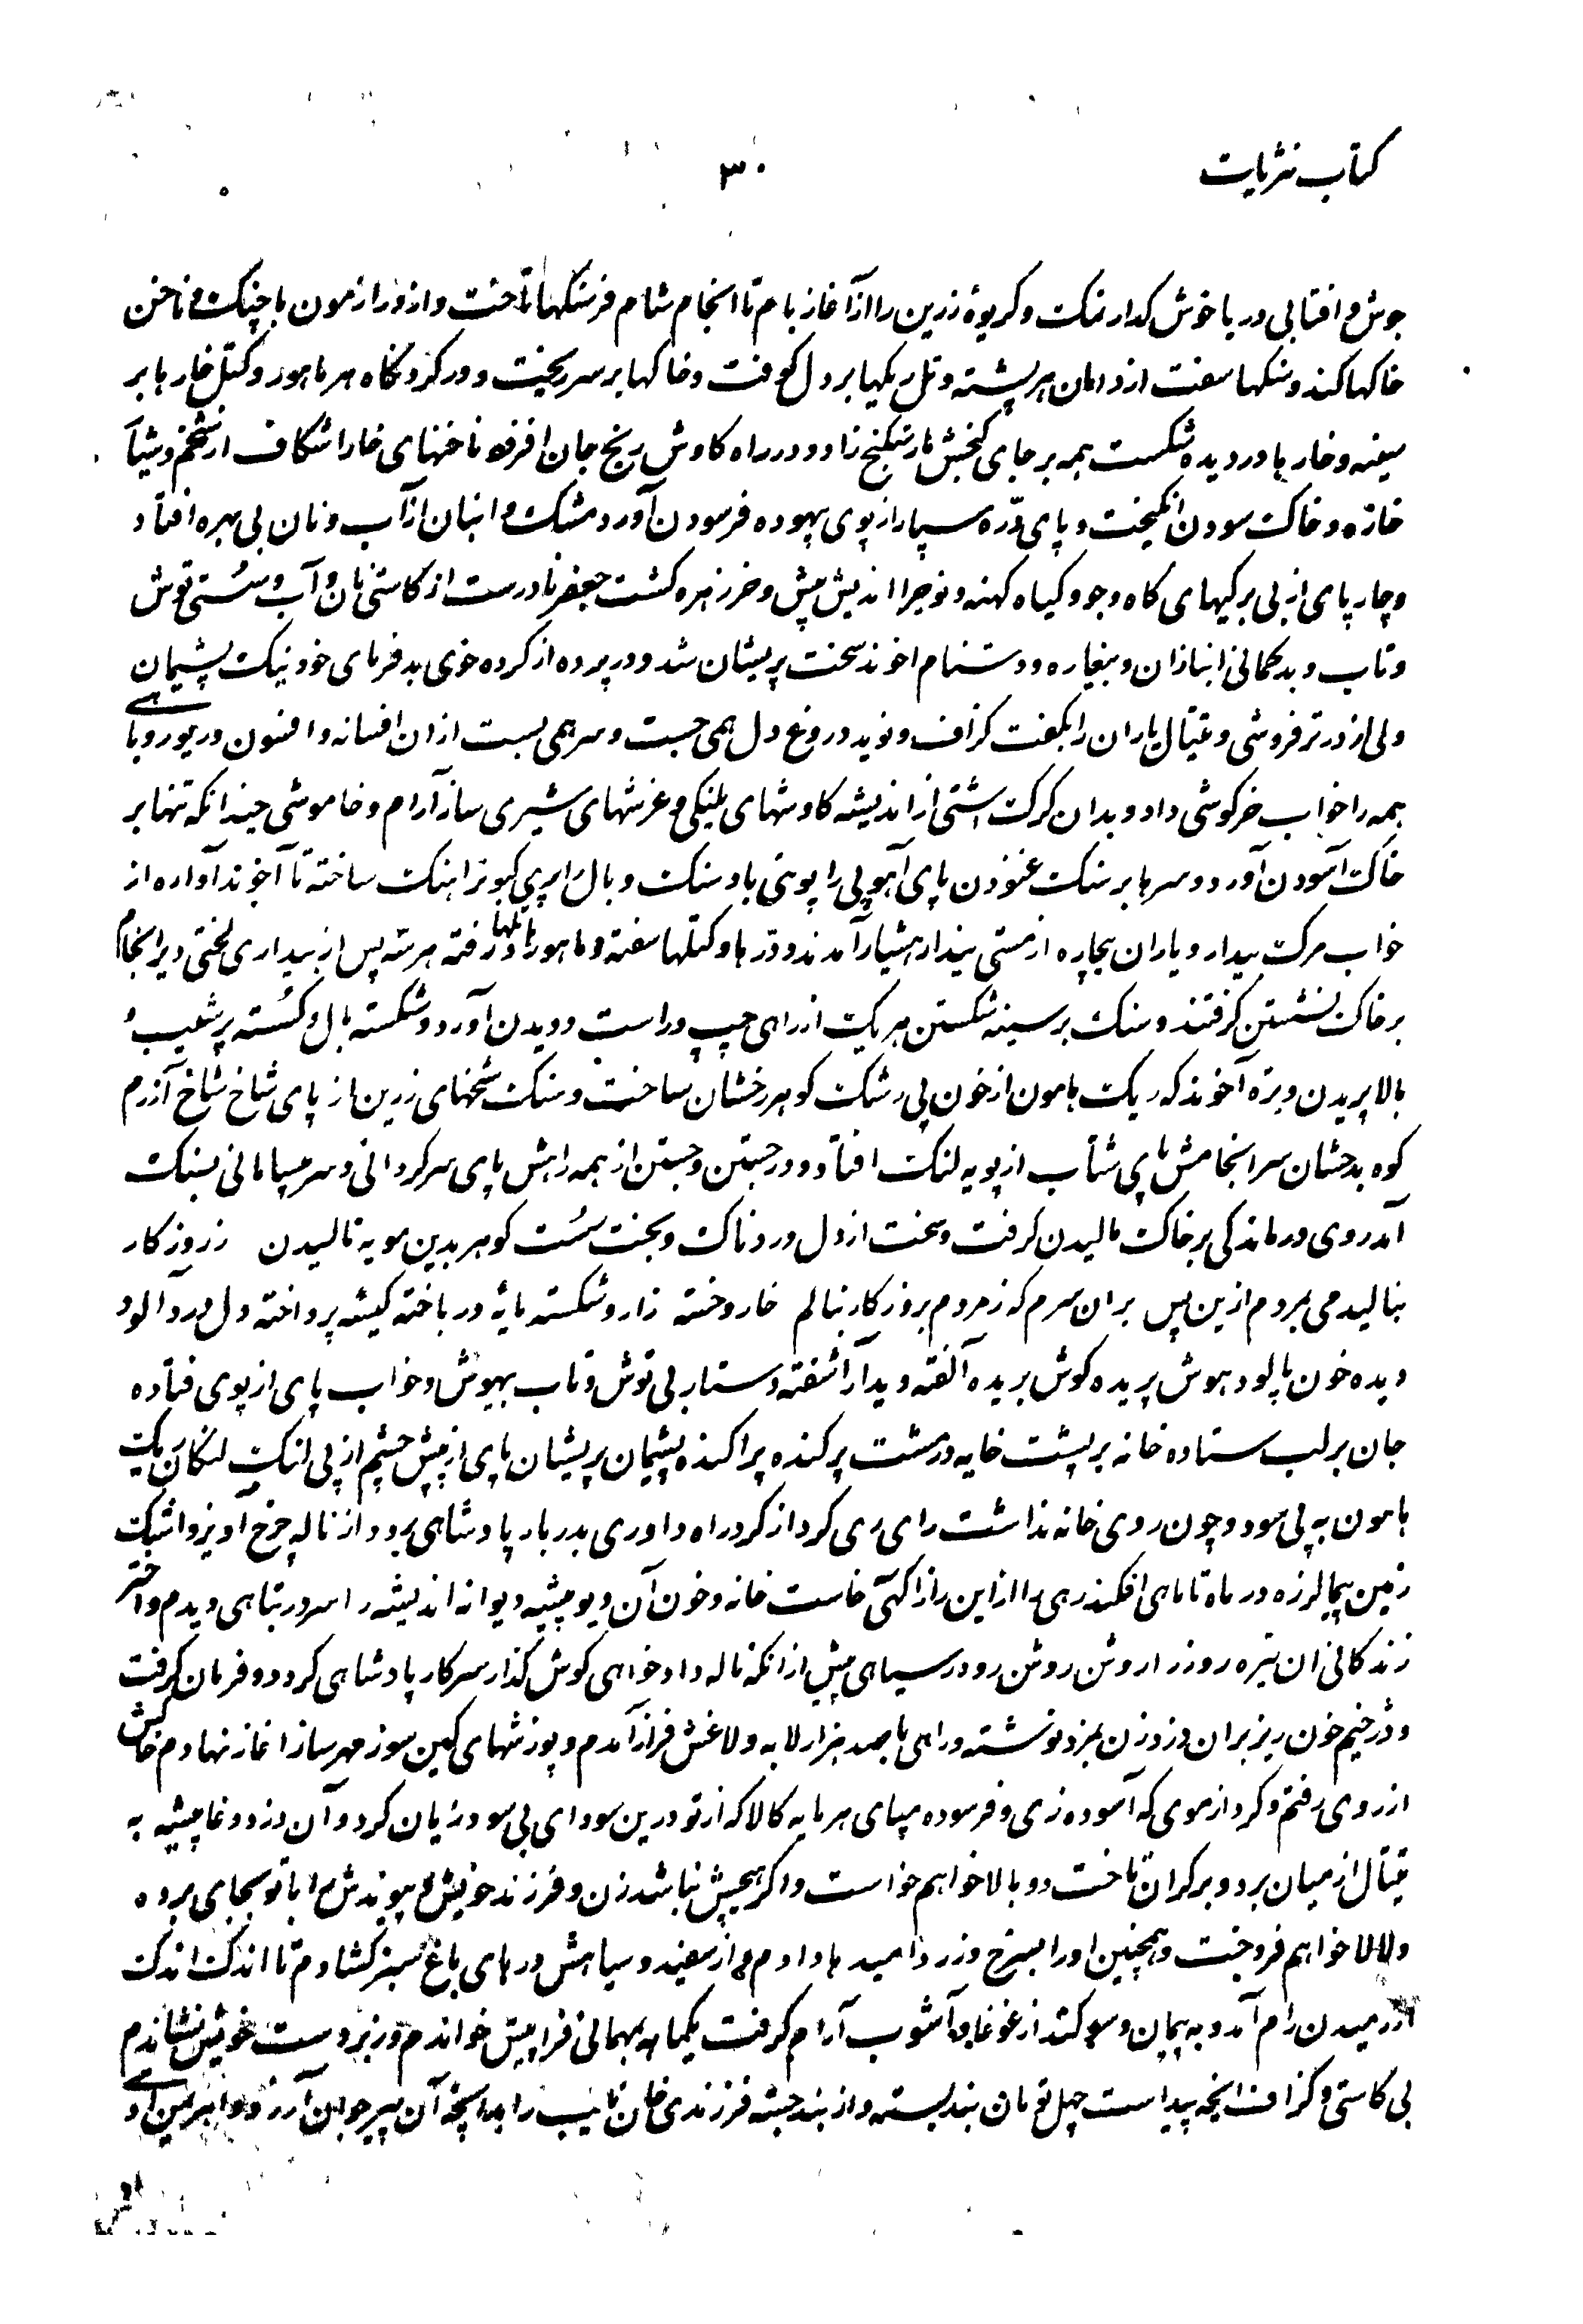 کتاب نثریات
۳۰
جوش و افتابی دریا خوش کدار نمک و کریوه زرین را از آغاز بام تا انجام شام فرسنکها تاخت و از ور ازمون با چنک و ناخن
خاکها کند و سنکها سفت از دامان هر پشته و تل ریکها بر دل کوفت و خاکها بر سر ریخت و در کرد کاه هر ماهور و کتل خارها بر
سینه و خارها در دیده شکست همه بر جای کنجش مار شکنج زاد و در راه کاوش رنج جان افزود ناخنهای خارا شکاف از شخم و شیار
خازه و خاک سودن انکیخت و پای دره سپار از پوی بیهوده فرسودن آورد مشک و انبان از آب و نان بی بهره افتاد
و چارپای از بی برکیهای کاه و جو و کیاه کهنه و نو چرا اندیش پیش و خر زهره کشت جعفر نادرست از کاستی نان و آب و سستی توش
و تاب و بدکمانی انبازان و بیغاره و دشنام اخوند سخت پریشان شد و در پرده از کرده خوی بد فرمای خود نیک پشیمان
ولی از در تر فروشی و غتال یاران را بکفت کزاف و نوید دروغ دل همی جست و سر همی بست از ان افسانه و افسون دریو روباهی
همه را خواب خرکوشی داد و بدان کرک اشتی از اندیشه کاوشهای پلنکی و غرشهای شیری ساز آرام و خاموشی چندانکه تنها بر
خاک آسودن آورد و سرها بر سنک غنودن پای آهوپی را پوئی باد سنک و بال را پری کبوتر اهنک ساخته تا آخوند آواره از
خواب مرک بیدار و یاران بیچاره از مستی پندار هشیار آمدند و درها و کتلها سفته و ماهورها و تلها رفته هر سه پس از بیداری لختی دیر انجام
بر خاک نشستن کرفتند و سنک بر سینه شکستن هر یک از راهی چپ و راست دویدن آورد و شکسته بال و کسسته پر شیب و
بالا پریدن ویژه آخوند که ریک هامون از خون پی رشک کوهر رخشان ساخت و سنک شخهای زرین از پای شاخ شاخ آزرم
کوه بدخشان سرانجامش پای شتاب از پویه لنک افتاد و در جستن و جستن از همه راهش پای سرکردانی و سر بیسامانی بسنک
آمد روی درماندکی بر خاک مالیدن کرفت و سخت از دل دردناک و بخت سست کوهر بدین مویه نالیدن ز روزکار
بنالیدمی بمردم ازین پس بران سرم که ز مردم بروزکار بنالم خار و خسته زار و شکسته مایه درباخته کیسه پرداخته دل درد آلود
دیده خون پالود هوش پریده کوش بریده آلفته دیدار آشفته دستار بی توش و تاب بیهوش و خواب پای از پوی فتاده
جان بر لب ستاده خانه بر پشت خایه در مشت پر کنده پراکنده پشیمان پریشان پای از پیش چشم از پی لنک لنکان ریک
هامون به پی سود و چون روی خانه نداشت رای ری کرد از کرد راه داوری بدربار پادشاهی برد و از ناله چرخ آویز و اشک
زمین پیما لرزه در ماه تا ماهی افکند رهی را از این راز اکهی خاست خانه و خون آن دیو پیشه دیوانه اندیشه را سر در تباهی دیدم و اختر
زندکانی ان تیره روز را روشن روشن رو در سیاهی پیش از انکه ناله دادخواهی کوش کذار سرکار پادشاهی کردد و فرمان کرفت
و دژخیم خون ریز بران دزد زن بمزد نوشته و راهی با صد هزار لابه و لاغش فراز آمدم و پوزشهای کین سوز مهرساز اغاز نهادم خاکش
از روی رفتم و کرد از موی که آسوده زی و فرسوده مپای هر مایه کالا که از تو درین سودای بی سود زیان کرد و آن دزد دغا پیشه به
قیتال از میان برد و بر کران تاخت دو بالا خواهم خواست و اکر هیچش نباشد زن و فرزند خویش و پیوندش را با تو بجای برده
و لالا خواهم فروخت و همچنین او را بسرخ و زرد امیدها دادم و از سفید و سیاهش درهای باغ سبز کشادم تا اندک اندک
از رمیدن رام آمد و به پیمان و سوکند از غوغا و آشوب آرام کرفت یکماهه بمهمانی فرا پیش خواندم و زبردست خویش نشاندم
بی کاستی و کزاف انچه پیداست چهل تومان بند بسته و از بند جسته فرزندی خان نایب را بداسپخته آن پیر جوان آرزو و اهریمن آدمی